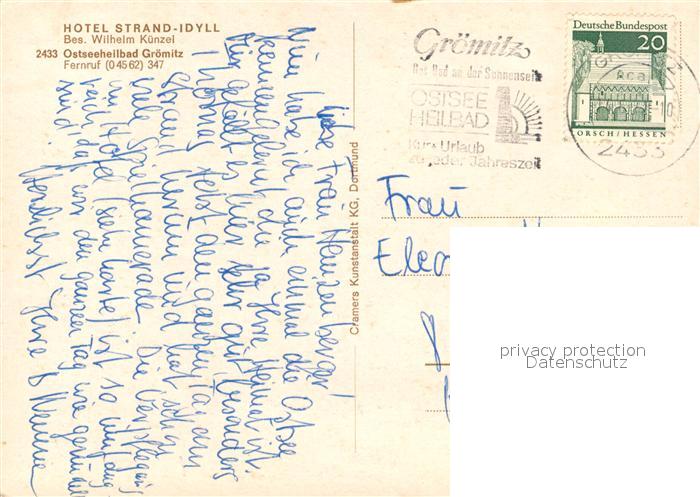 HOTEL STRAND-IDYLL
Bes. Wilhelm Künzel
2433 Ostseeheilbad Grömitz
Fernruf (04562) 347
Grömitz
Das Bad an der Sonnenseite
OSTSEE
HEILBAD
Kur + Urlaub
zu jeder Jahreszeit
Deutsche Bundespost
20
LORSCH/HESSEN
2433
Cramers Kunstanstalt KG, Dortmund
Liebe Frau
Nun habe ich auch einmal die Ostsee
kennengelernt, die ja Ihre Heimat ist.
Mir gefällt es hier sehr gut. Besonders
Thomas tobt den ganzen Tag am
Strand herum und hat schon
viele Spielkameraden. Die Verpflegung
im Hotel (sein Karte) ist so
reich, daß wir den ganzen Tag wie
sind.
Herzlichst Ihre
Frau
privacy protection
Datenschutz